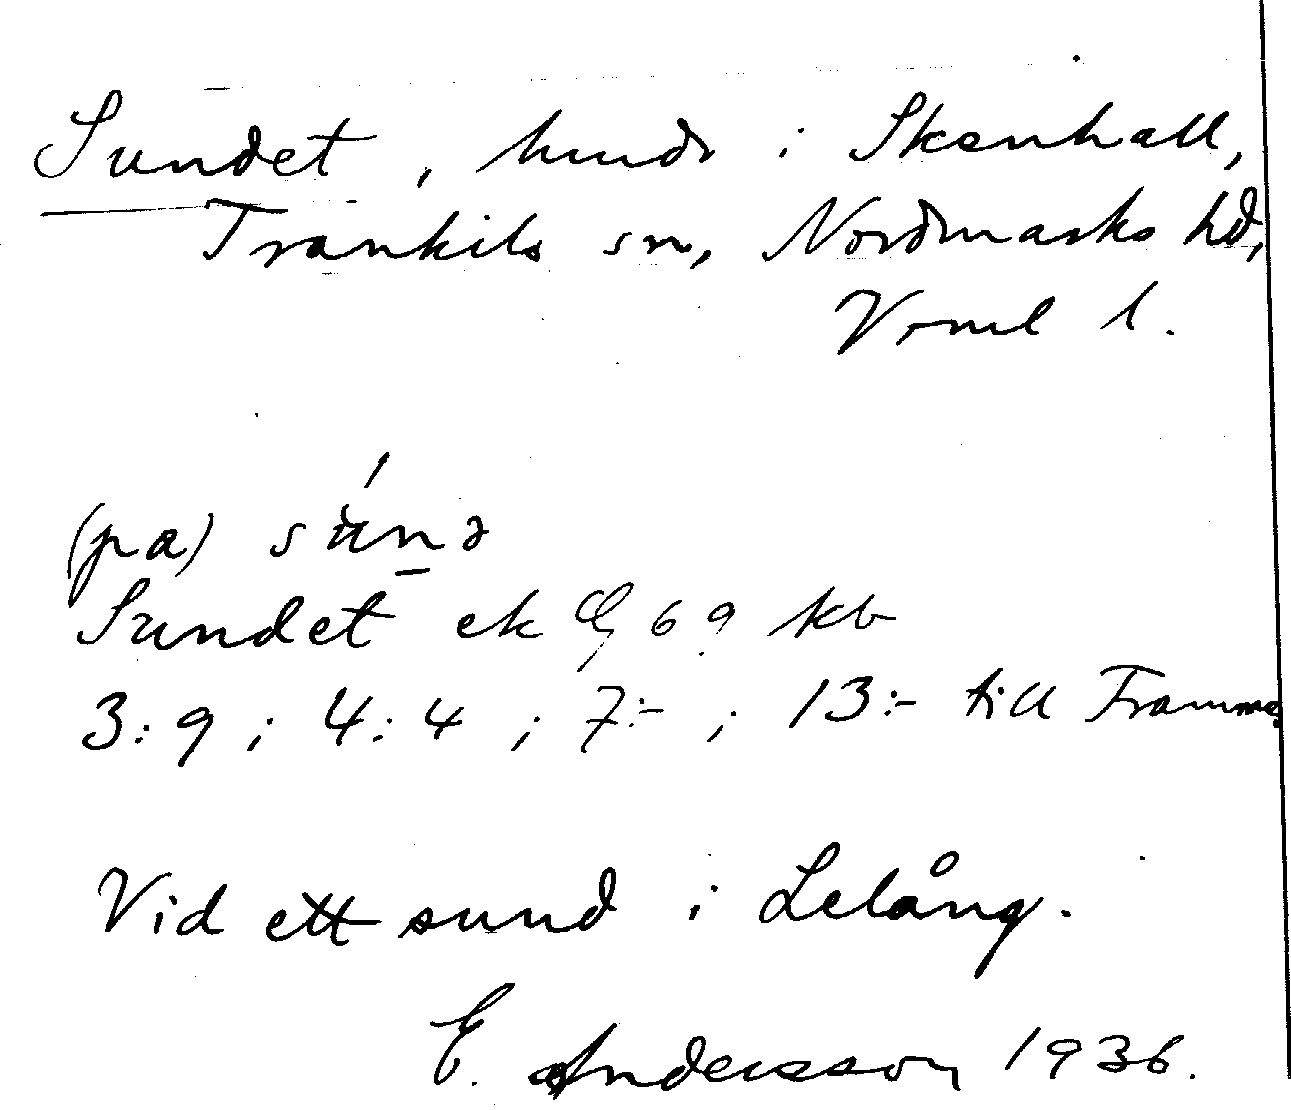 Sundet, hmd i Skenhall,
Trankils sn, Nordmarks hd,
Vrml l.
(pa) su̇́nə
Sundet ek G 69 kb
3:9; 4:4; 7:-; 13:- till
Vid ett sund i Lelång.
E. Andersson 1936.